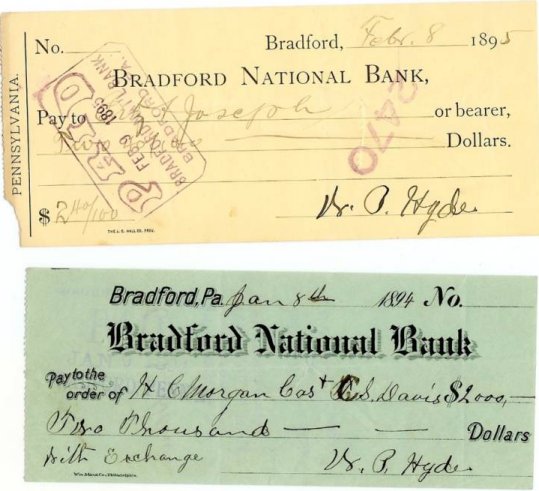 No. Bradford, Febr. 8 1895
BRADFORD NATIONAL BANK,
PENNSYLVANIA.
Pay to Joseph or bearer,
Two Dollars.
$2 40/100 W. P. Hyde
THE J. E. HALL CO. PROV.
PAID
FEB 9 1895
BRADFORD, PA.
2470
Bradford, Pa. Jan 8th 1894 No.
Bradford National Bank
Pay to the order of H C Morgan Cast C. S. Davis $2000,—
Two Thousand — — Dollars
With Exchange W. P. Hyde